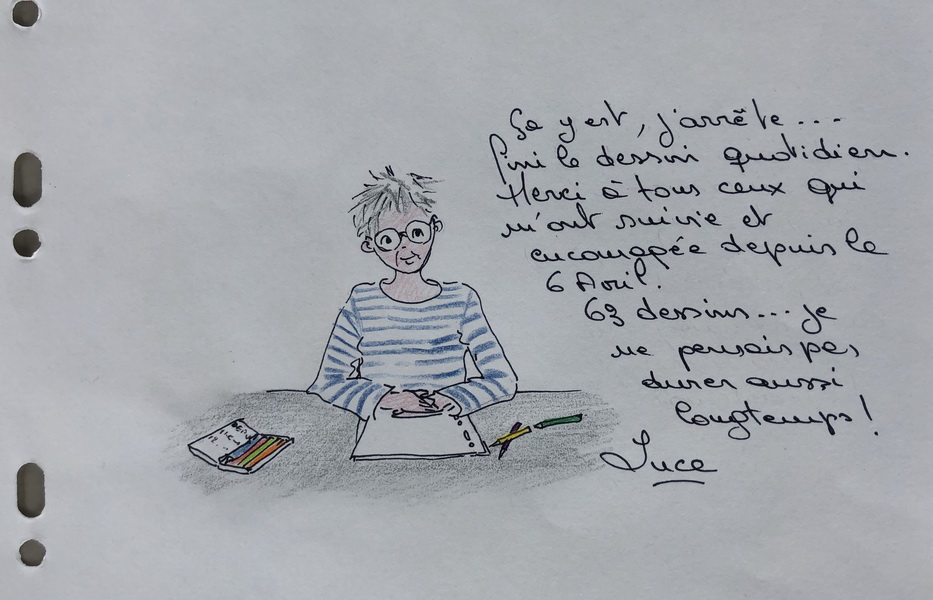 Ça y est, j'arrête...
fini le dessin quotidien.
Merci à tous ceux qui
m'ont suivie et
encouragée depuis le
6 Avril.
63 dessins... je
ne pensais pas
durer aussi
longtemps !
Luce